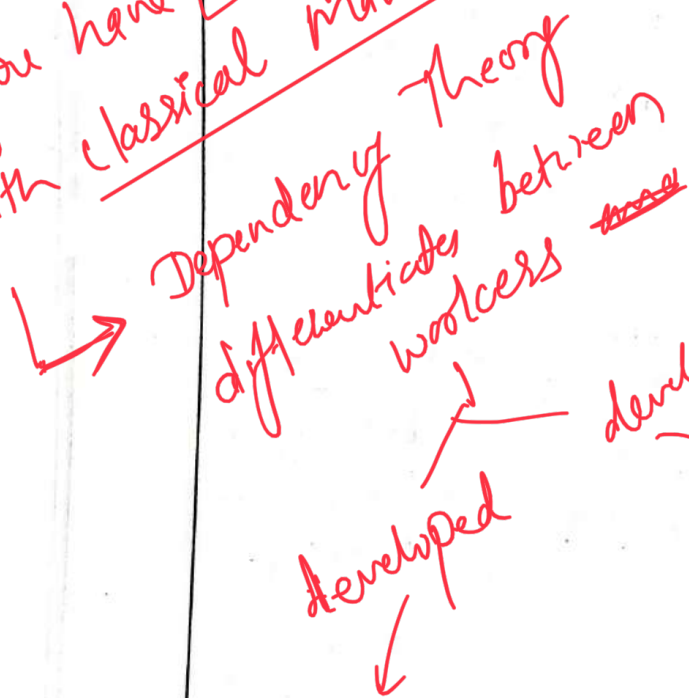 ou have
th classical
Dependency Theory
differentiates between
workers
developed
devel